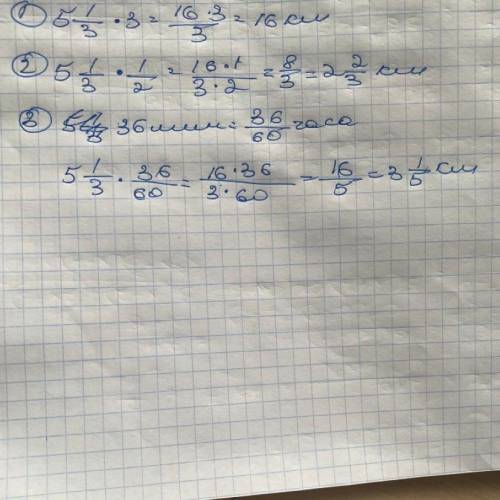 1) 5 1/3 · 3 = 16·3/3 = 16 км
2) 5 1/3 · 1/2 = 16·1/3·2 = 8/3 = 2 2/3 км
3) 36 мин = 36/60 часа
5 1/3 · 36/60 = 16·36/3·60 = 16/5 = 3 1/5 км